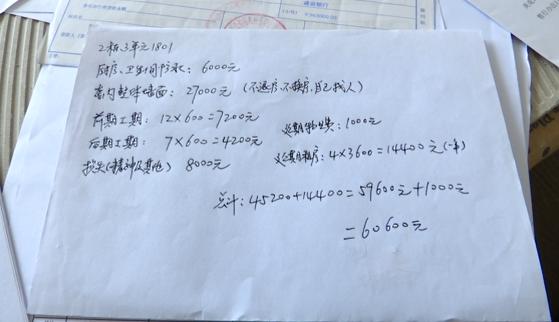 2栋3单元1801
厨房、卫生间防水: 6000元
室内整体墙面: 27000元 (不退房,不换房,自己找人)
前期工期: 12×600=7200元
延期物业费: 1000元
后期工期: 7×600=4200元
延期租房: 4×3600=14400元(一年)
损失(精神及其他) 8000元
总计: 45200+14400=59600元+1000元
=60600元